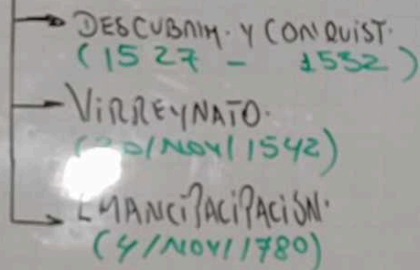 DESCUBRIM. Y CONQUIST.
(1527 - 1532)
VIRREYNATO.
(20/NOV/1542)
EMANCIPACIPACIÓN.
(4/NOV/1780)